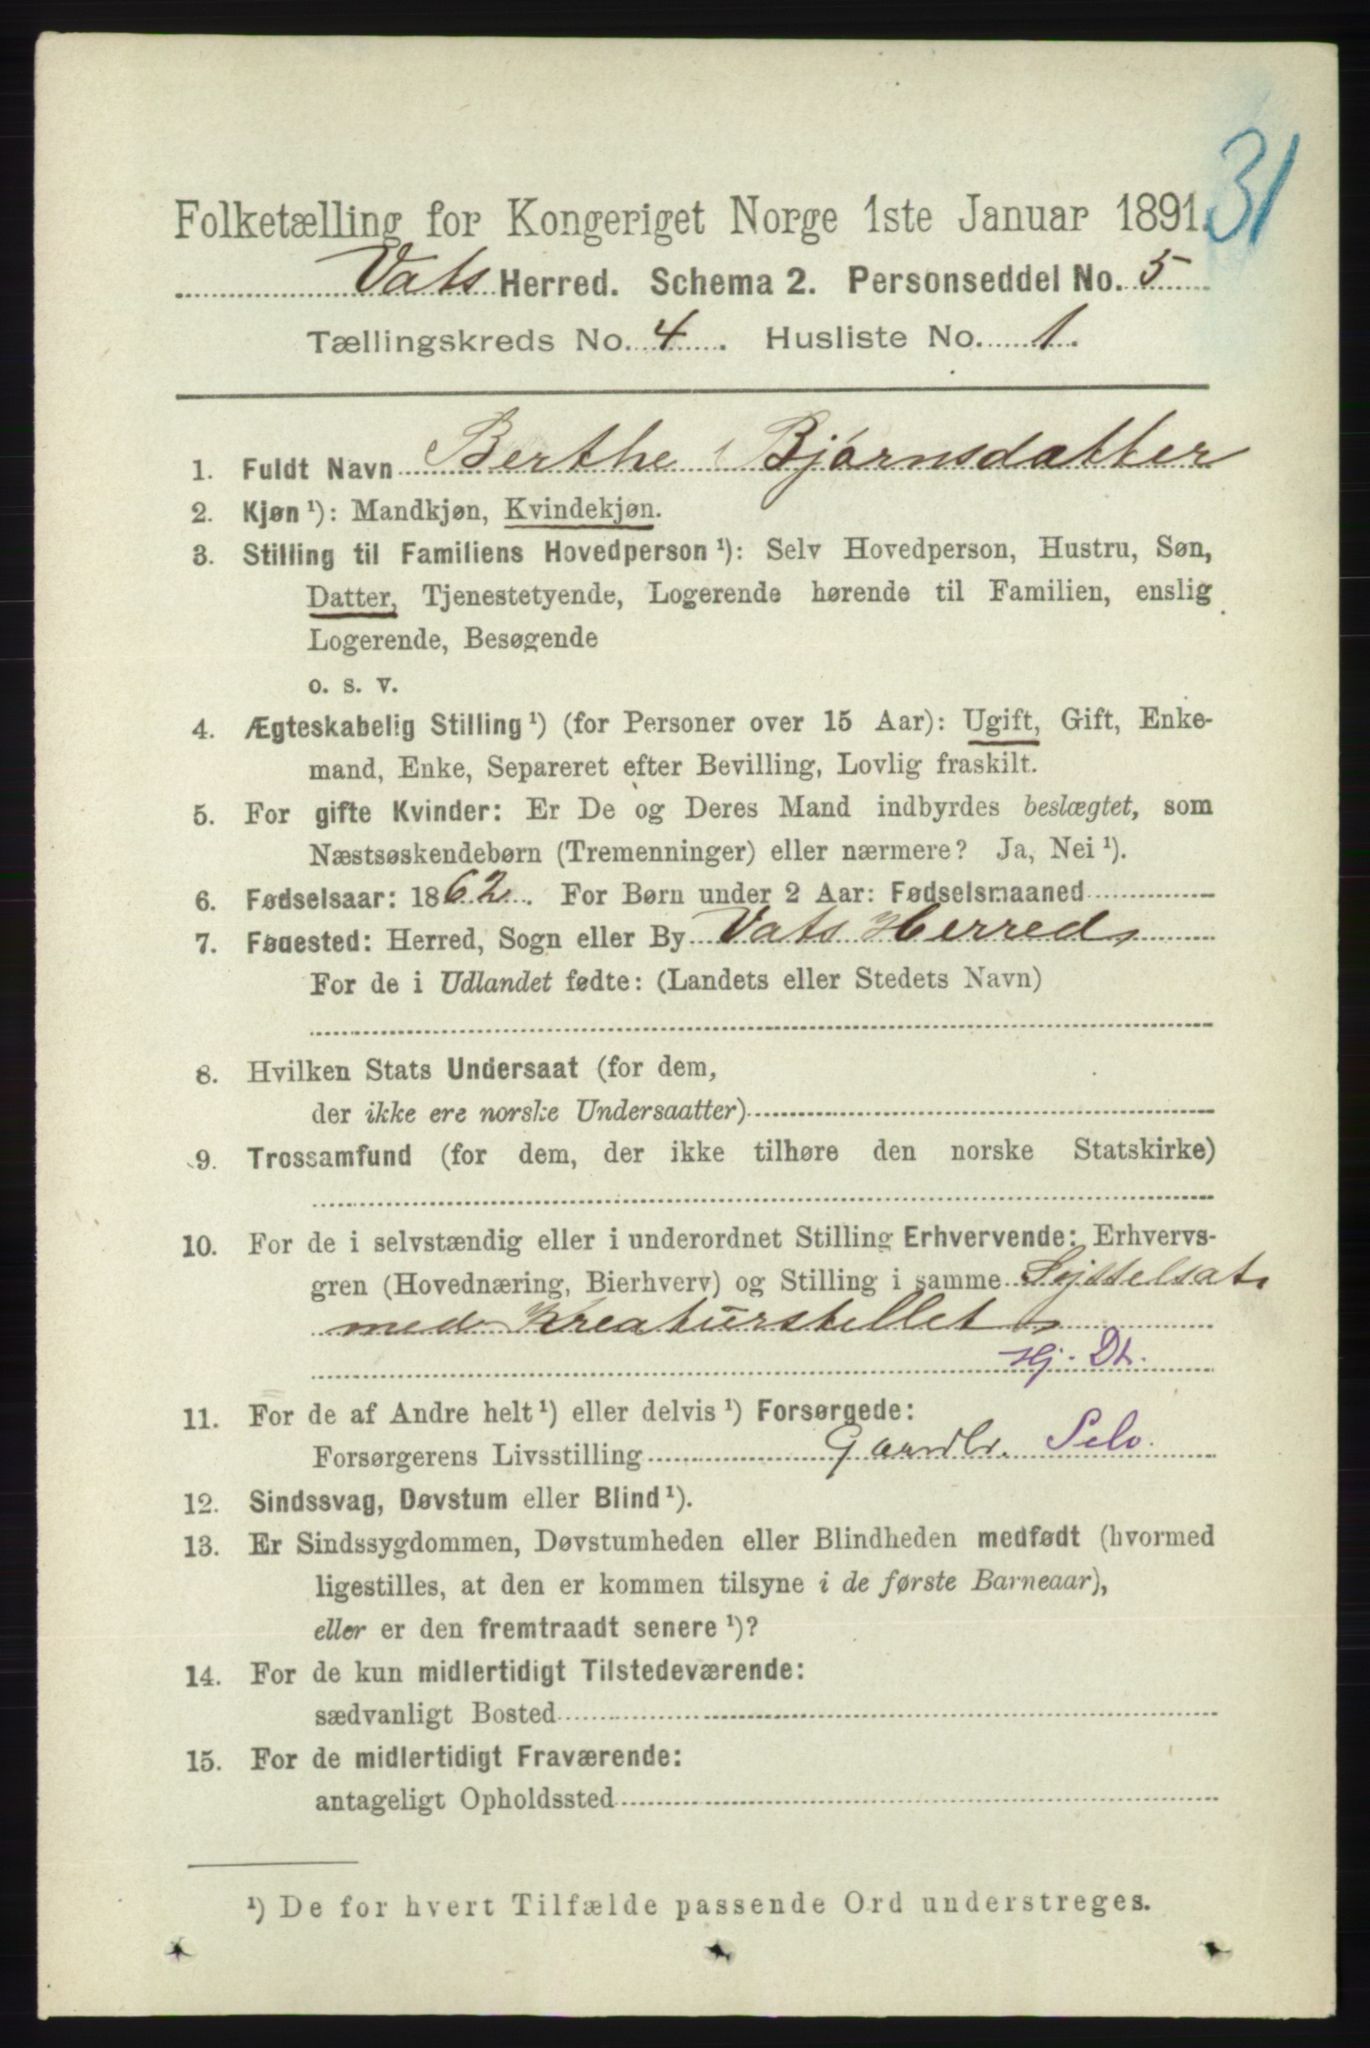 31
Folketælling for Kongeriget Norge 1ste Januar 1891.
Vats Herred. Schema 2. Personseddel No. 5
Tællingskreds No. 4. Husliste No. 1.
1. Fuldt Navn Berthe Bjørnsdatter
2. Kjøn ¹): Mandkjøn, Kvindekjøn.
3. Stilling til Familiens Hovedperson ¹): Selv Hovedperson, Hustru, Søn,
Datter, Tjenestetyende, Logerende hørende til Familien, enslig
Logerende, Besøgende
o. s. v.
4. Ægteskabelig Stilling ¹) (for Personer over 15 Aar): Ugift, Gift, Enke-
mand, Enke, Separeret efter Bevilling, Lovlig fraskilt.
5. For gifte Kvinder: Er De og Deres Mand indbyrdes beslægtet, som
Næstsøskendebørn (Tremenninger) eller nærmere? Ja, Nei ¹).
6. Fødselsaar: 1862. For Børn under 2 Aar: Fødselsmaaned
7. Fødested: Herred, Sogn eller By Vats Herred
For de i Udlandet fødte: (Landets eller Stedets Navn)
8. Hvilken Stats Undersaat (for dem,
der ikke ere norske Undersaatter)
9. Trossamfund (for dem, der ikke tilhøre den norske Statskirke)
10. For de i selvstændig eller i underordnet Stilling Erhvervende: Erhvervs-
gren (Hovednæring, Bierhverv) og Stilling i samme Sysselsat
med Kreaturstellet
Hj. Dt.
11. For de af Andre helt ¹) eller delvis ¹) Forsørgede:
Forsørgerens Livsstilling Gaardbr. Selv.
12. Sindssvag, Døvstum eller Blind ¹).
13. Er Sindssygdommen, Døvstumheden eller Blindheden medfødt (hvormed
ligestilles, at den er kommen tilsyne i de første Barneaar),
eller er den fremtraadt senere ¹)?
14. For de kun midlertidigt Tilstedeværende:
sædvanligt Bosted
15. For de midlertidigt Fraværende:
antageligt Opholdssted
¹) De for hvert Tilfælde passende Ord understreges.